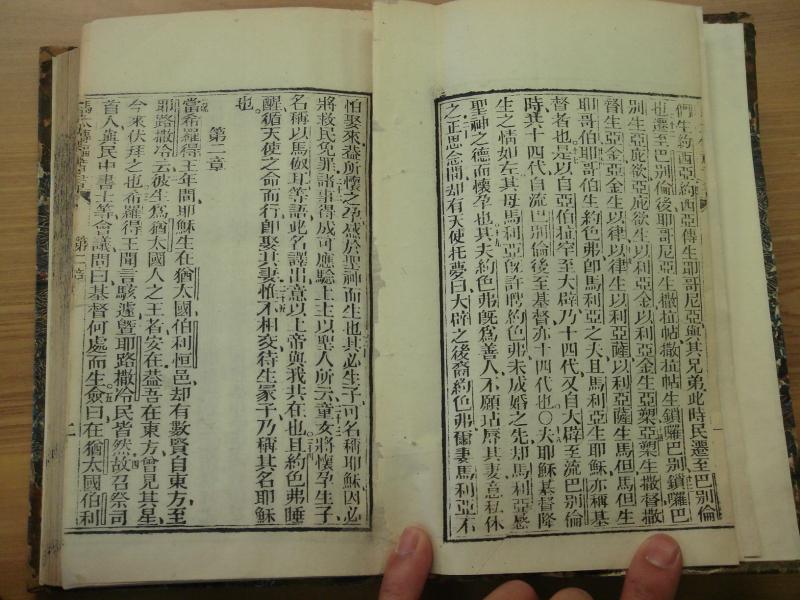 們生約西亞約西亞傳生耶哥尼亞與其兄弟此時民遷至巴別倫
也遷至巴別倫後耶哥尼亞生撒拉帖撒拉帖生鎖囉巴別鎖囉巴
別生亞庇欲亞庇欲生以利亞金以利亞金生亞槊亞槊生撒督撒
督生亞金亞金生以律以律生以利亞薩以利亞薩生馬但馬但生
耶哥伯耶哥伯生約色弗即馬利亞之夫且馬利亞生耶穌亦稱基
督者也是以自亞伯拉罕至大辟乃十四代又自大辟至流巴別倫
時共十四代自流巴別倫後至基督亦十四代也〇夫耶穌基督降
生之情如左其母馬利亞既許聘約色弗未成婚之先却馬利亞感
聖神之德而懷孕也其夫約色弗既爲善人不願玷辱其妻意私休
之正思念間却有天使托夢曰大辟之後裔約色弗爾妻馬利亞不
怕娶來葢所懷之孕感於聖神而生也其必生子可名稱耶穌因必
將救民免罪諸事得成可應驗上主以聖人所示童女將懷孕生子
名稱以馬俟耳等語此名譯出意以上帝與我共在也且約色弗睡
醒循天使之命而行即娶其妻惟不相交待生冢子乃稱其名耶穌
也
第二章
當希羅得王年間耶穌生在猶太國伯利恒邑却有數賢自東方至
耶路撒冷云彼生爲猶太國人之王者安在葢吾在東方曾見其星
今來伏拜之也希羅得王聞言駭遽曁耶路撒冷民皆然故召祭司
首人與民中書士等會議問曰基督何處而生僉曰在猶太國伯利
第二章
二